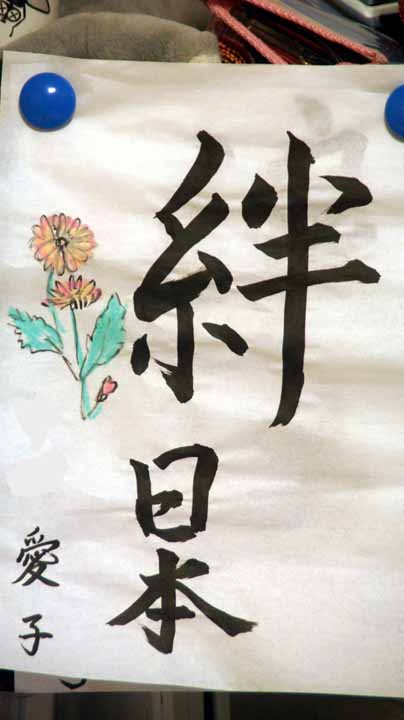 絆
日本
愛子